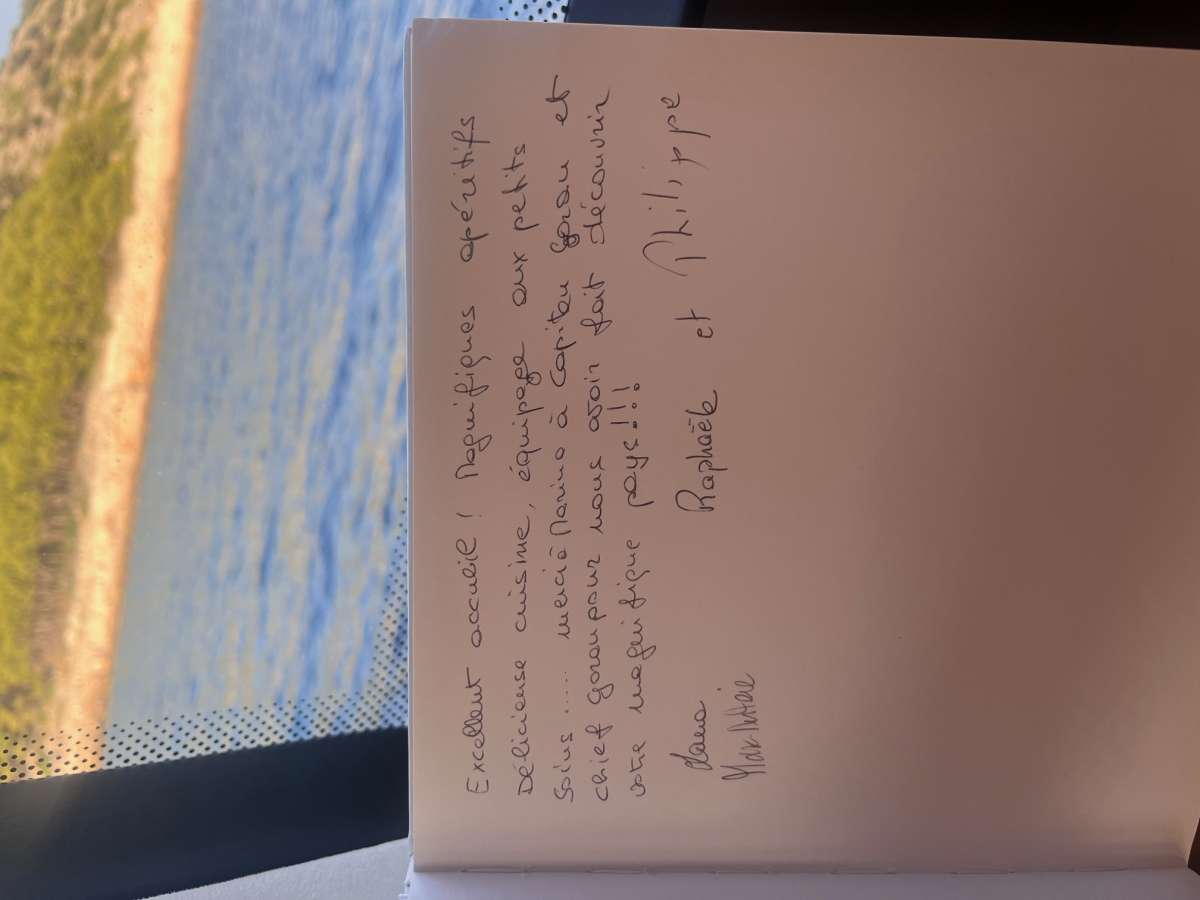 Excellent accueil ! Magnifiques apéritifs
Délicieuse cuisine, équipage aux petits
Soins ..... merci à Marino à Capitan Goran et
chief Goran pour nous avoir fait découvrir
votre magnifique pays!!!
Raphaële et Philippe